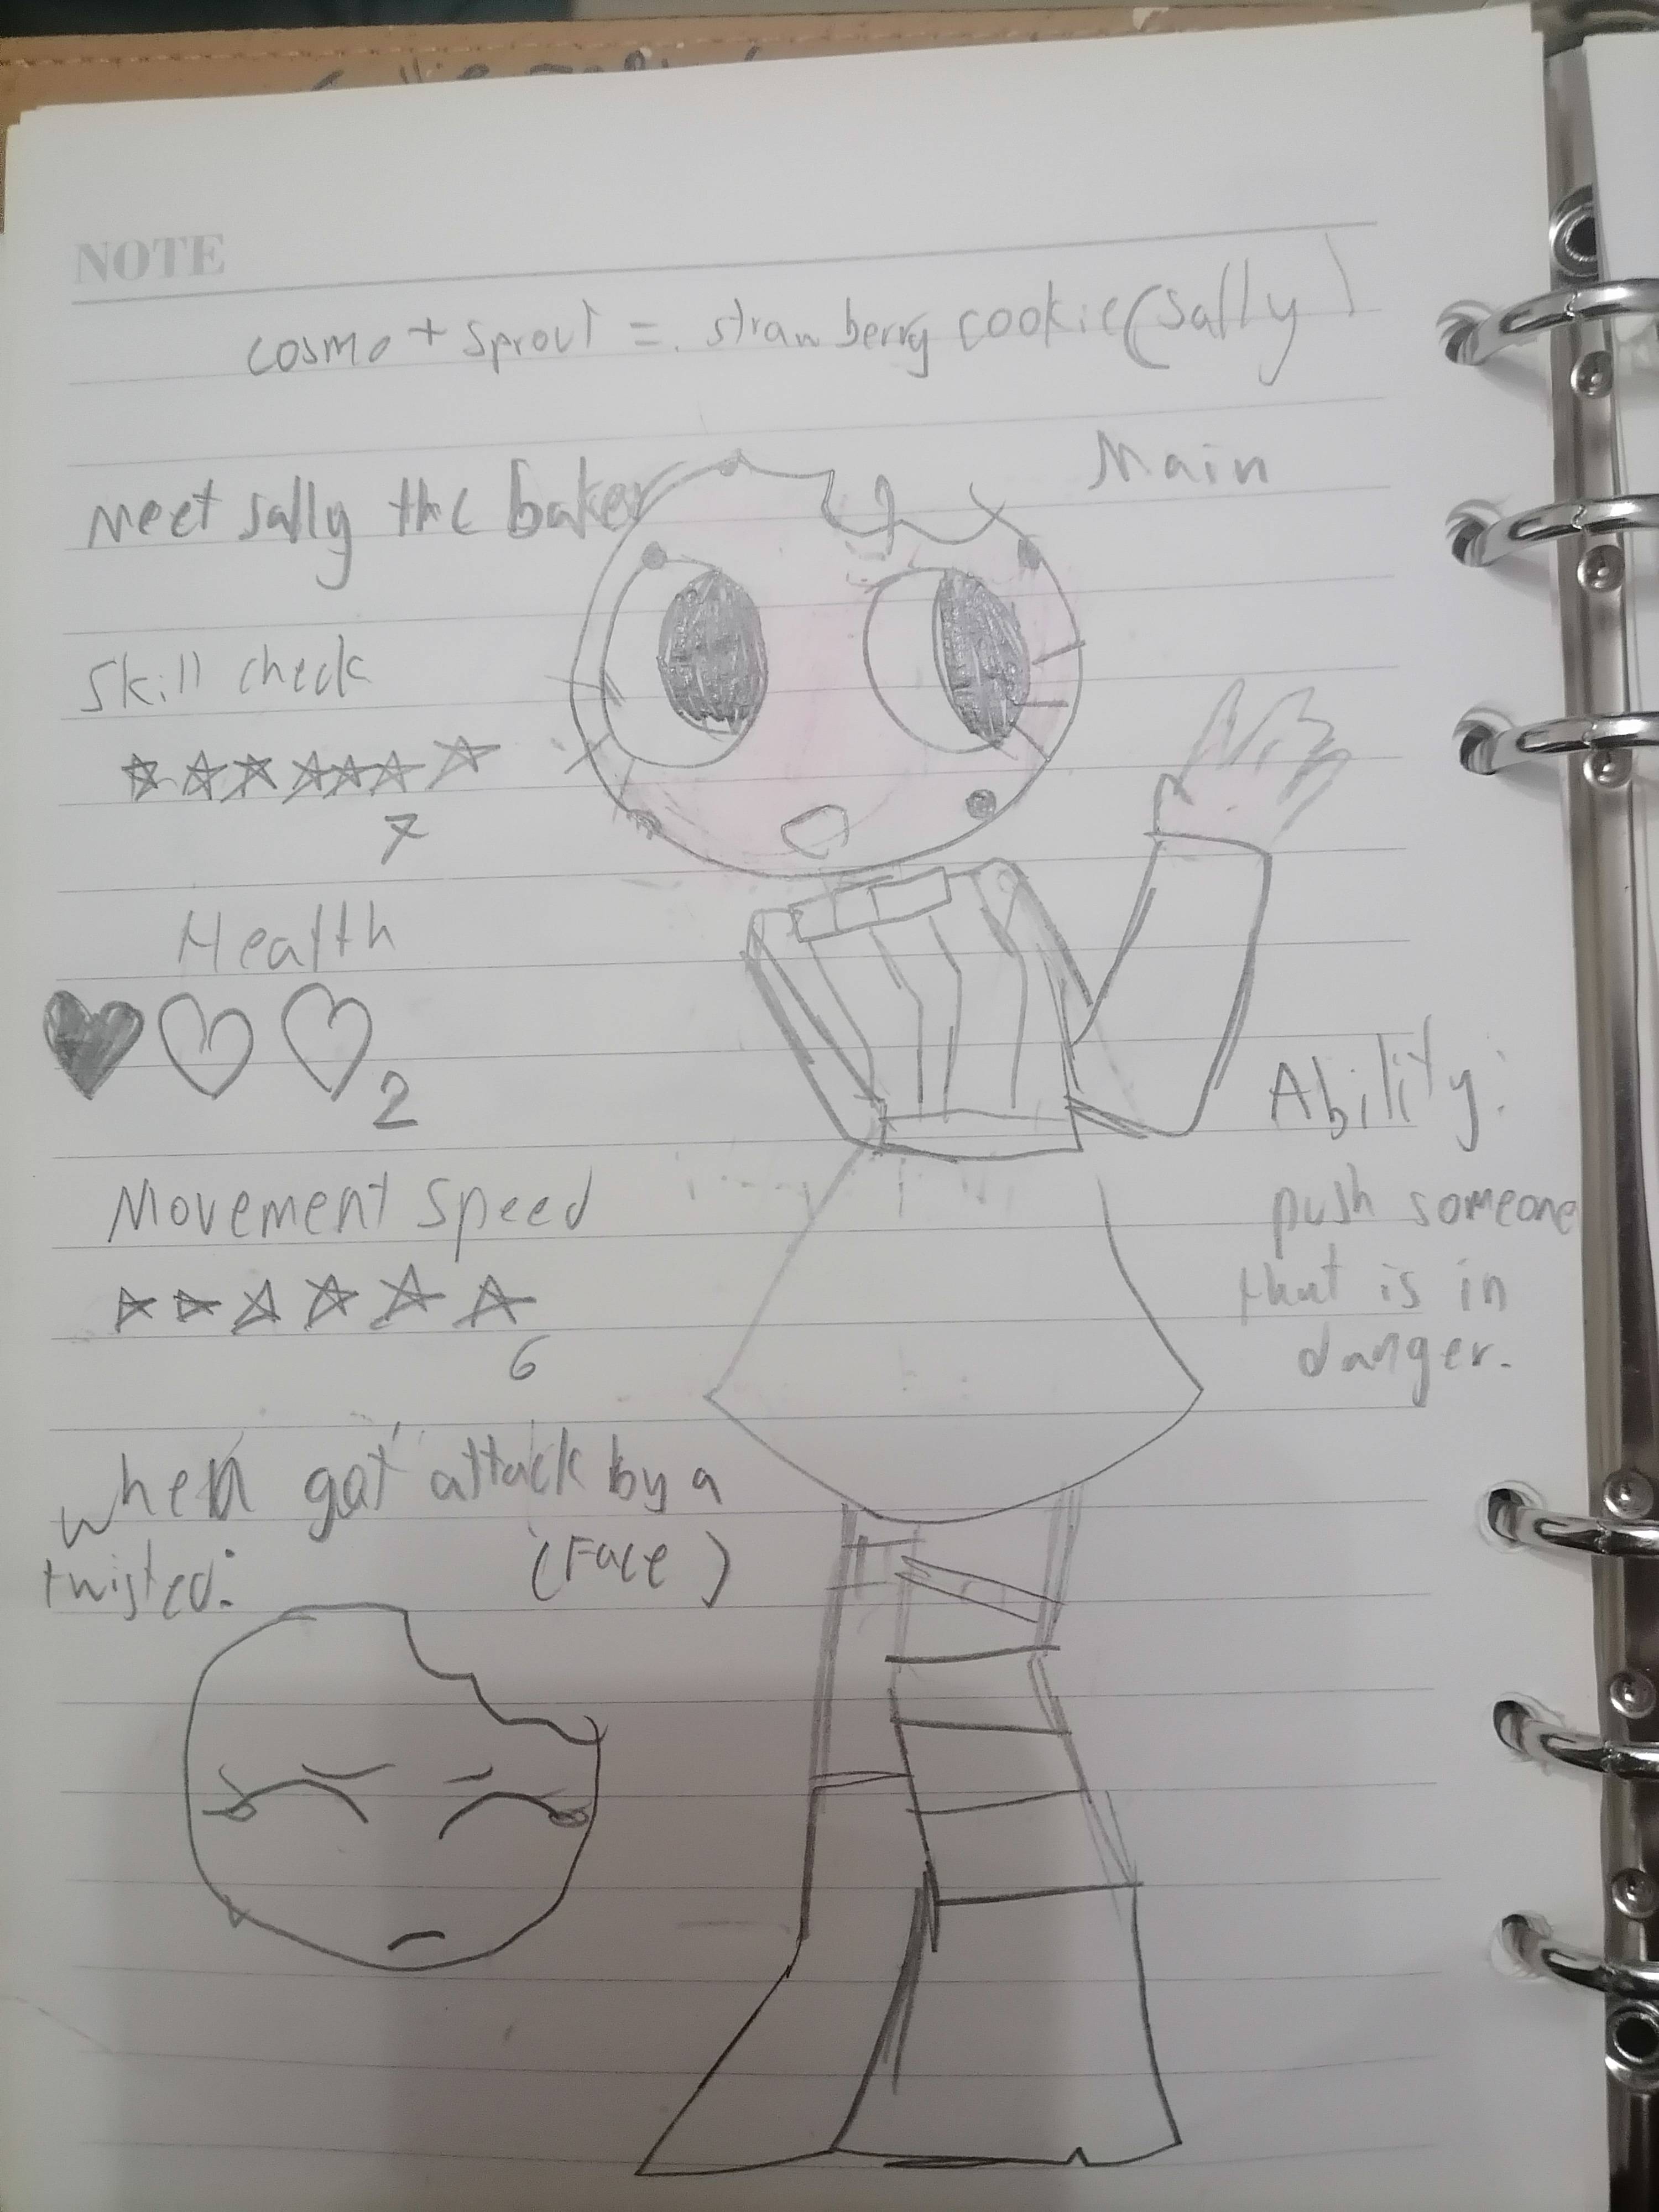 NOTE
cosmo + sprout = strawberry cookie (Sally)
Main
Meet sally the baker
Skill check
7
Health
2
Movement Speed
6
Ability:
push someone
that is in
danger.
when got attack by a
twisted: (Face)